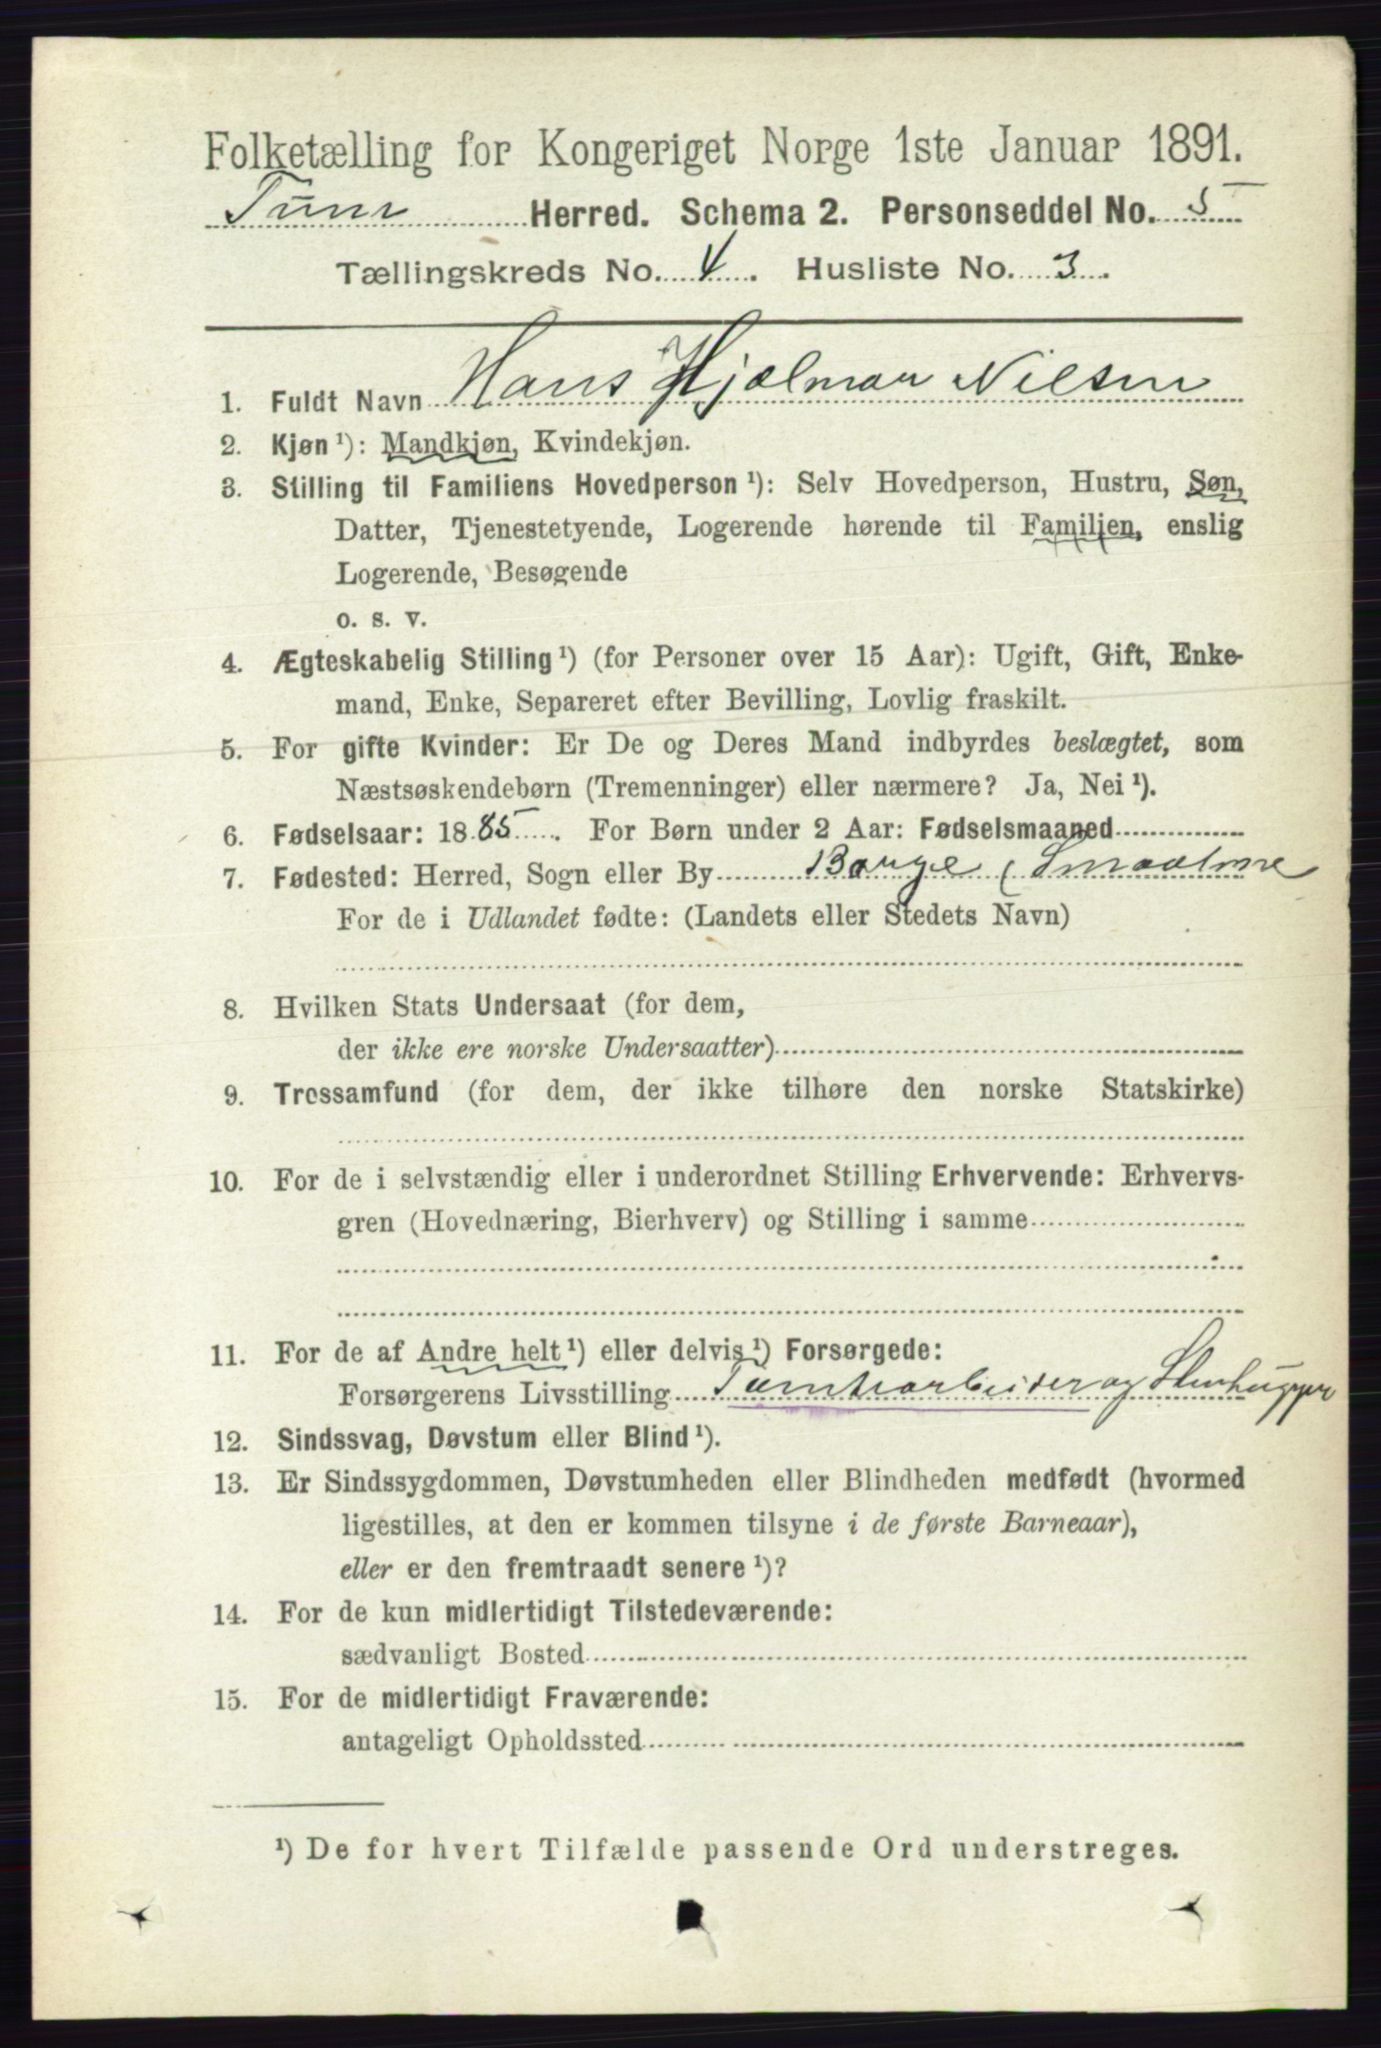 Folketælling for Kongeriget Norge 1ste Januar 1891.
Tune Herred. Schema 2. Personseddel No. 5
Tællingskreds No. 4. Husliste No. 3.
1. Fuldt Navn Hans Hjalmar Nilsen
2. Kjøn ¹): Mandkjøn, Kvindekjøn.
3. Stilling til Familiens Hovedperson ¹): Selv Hovedperson, Hustru, Søn,
Datter, Tjenestetyende, Logerende hørende til Familien, enslig
Logerende, Besøgende
o. s. v.
4. Ægteskabelig Stilling ¹) (for Personer over 15 Aar): Ugift, Gift, Enke-
mand, Enke, Separeret efter Bevilling, Lovlig fraskilt.
5. For gifte Kvinder: Er De og Deres Mand indbyrdes beslægtet, som
Næstsøskendebørn (Tremenninger) eller nærmere? Ja, Nei ¹).
6. Fødselsaar: 1885. For Børn under 2 Aar: Fødselsmaaned
7. Fødested: Herred, Sogn eller By Borge (Smaalene
For de i Udlandet fødte: (Landets eller Stedets Navn)
8. Hvilken Stats Undersaat (for dem,
der ikke ere norske Undersaatter)
9. Trossamfund (for dem, der ikke tilhøre den norske Statskirke)
10. For de i selvstændig eller i underordnet Stilling Erhvervende: Erhvervs-
gren (Hovednæring, Bierhverv) og Stilling i samme
11. For de af Andre helt ¹) eller delvis ¹) Forsørgede:
Forsørgerens Livsstilling Tomtearbeider og Stenhugger
12. Sindssvag, Døvstum eller Blind ¹).
13. Er Sindssygdommen, Døvstumheden eller Blindheden medfødt (hvormed
ligestilles, at den er kommen tilsyne i de første Barneaar),
eller er den fremtraadt senere ¹)?
14. For de kun midlertidigt Tilstedeværende:
sædvanligt Bosted
15. For de midlertidigt Fraværende:
antageligt Opholdssted
¹) De for hvert Tilfælde passende Ord understreges.